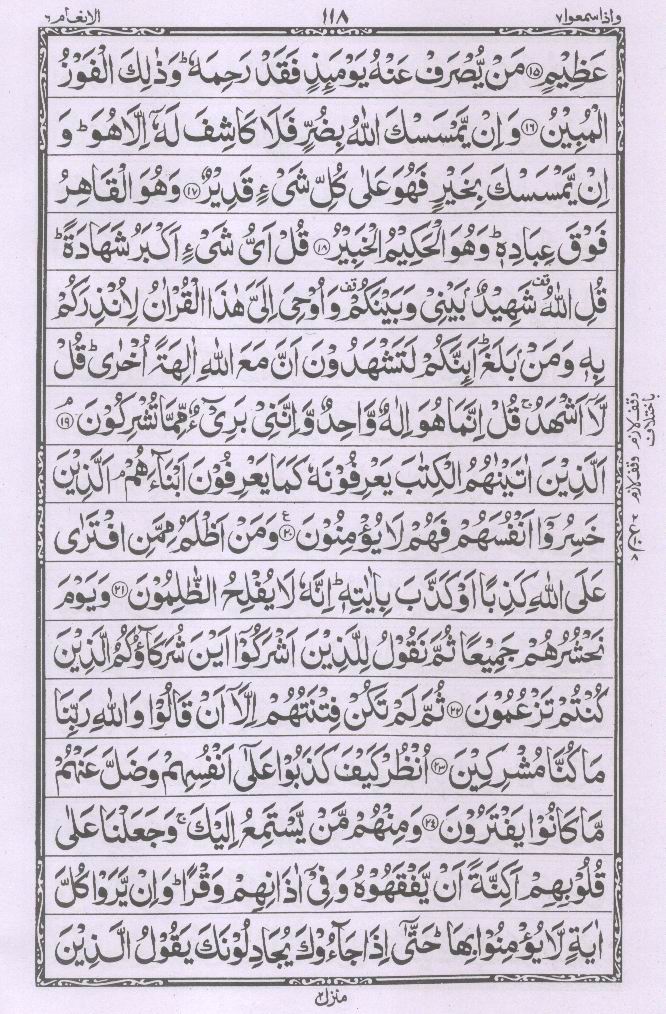 واذا سمعوا ٧ ١١٨ الانعام ٦
عَظِيْمٍ ﴿١٥﴾ مَنْ يُّصْرَفْ عَنْهُ يَوْمَىِٕذٍ فَقَدْ رَحِمَهٗ ؕ وَذٰلِكَ الْفَوْزُ
الْمُبِيْنُ ﴿١٦﴾ وَاِنْ يَّمْسَسْكَ اللّٰهُ بِضُرٍّ فَلَا كَاشِفَ لَهٗۤ اِلَّا هُوَ ؕ وَ
اِنْ يَّمْسَسْكَ بِخَيْرٍ فَهُوَ عَلٰى كُلِّ شَىْءٍ قَدِيْرٌ ﴿١٧﴾ وَهُوَ الْقَاهِرُ
فَوْقَ عِبَادِهٖ ؕ وَهُوَ الْحَكِيْمُ الْخَبِيْرُ ﴿١٨﴾ قُلْ اَىُّ شَىْءٍ اَكْبَرُ شَهَادَةً ؕ
قُلِ اللّٰهُ ۫ قف شَهِيْدٌۢ بَيْنِىْ وَبَيْنَكُمْ قف وَاُوْحِىَ اِلَىَّ هٰذَا الْقُرْاٰنُ لِاُنْذِرَكُمْ
بِهٖ وَمَنْۢ بَلَغَ ؕ اَىِٕنَّكُمْ لَتَشْهَدُوْنَ اَنَّ مَعَ اللّٰهِ اٰلِهَةً اُخْرٰى ؕ قُلْ
لَّاۤ اَشْهَدُ ۚ قُلْ اِنَّمَا هُوَ اِلٰهٌ وَّاحِدٌ وَّاِنَّنِىْ بَرِىْٓءٌ مِّمَّا تُشْرِكُوْنَ ۘ ﴿١٩﴾
اَلَّذِيْنَ اٰتَيْنٰهُمُ الْكِتٰبَ يَعْرِفُوْنَهٗ كَمَا يَعْرِفُوْنَ اَبْنَآءَهُمْ ۘ اَلَّذِيْنَ
خَسِرُوْۤا اَنْفُسَهُمْ فَهُمْ لَا يُؤْمِنُوْنَ ﴿٢٠﴾ ع وَمَنْ اَظْلَمُ مِمَّنِ افْتَرٰى
عَلَى اللّٰهِ كَذِبًا اَوْ كَذَّبَ بِاٰيٰتِهٖ ؕ اِنَّهٗ لَا يُفْلِحُ الظّٰلِمُوْنَ ﴿٢١﴾ وَيَوْمَ
نَحْشُرُهُمْ جَمِيْعًا ثُمَّ نَقُوْلُ لِلَّذِيْنَ اَشْرَكُوْۤا اَيْنَ شُرَكَآؤُكُمُ الَّذِيْنَ
كُنْتُمْ تَزْعُمُوْنَ ﴿٢٢﴾ ثُمَّ لَمْ تَكُنْ فِتْنَتُهُمْ اِلَّاۤ اَنْ قَالُوْا وَاللّٰهِ رَبِّنَا
مَا كُنَّا مُشْرِكِيْنَ ﴿٢٣﴾ اُنْظُرْ كَيْفَ كَذَبُوْا عَلٰۤى اَنْفُسِهِمْ وَضَلَّ عَنْهُمْ
مَّا كَانُوْا يَفْتَرُوْنَ ﴿٢٤﴾ وَمِنْهُمْ مَّنْ يَّسْتَمِعُ اِلَيْكَ ۚ وَجَعَلْنَا عَلٰى
قُلُوْبِهِمْ اَكِنَّةً اَنْ يَّفْقَهُوْهُ وَفِىْۤ اٰذَانِهِمْ وَقْرًا ؕ وَاِنْ يَّرَوْا كُلَّ
اٰيَةٍ لَّا يُؤْمِنُوْا بِهَا ؕ حَتّٰۤى اِذَا جَآءُوْكَ يُجَادِلُوْنَكَ يَقُوْلُ الَّذِيْنَ
وقف لازم باختلاف
وقف لازم
منزل ٢